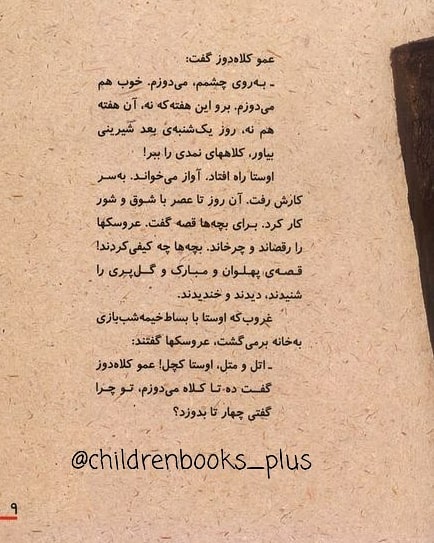 عمو کلاه‌دوز گفت:
ـ به‌روی چشمم، می‌دوزم. خوب هم
می‌دوزم. برو این هفته‌که نه، آن هفته
هم نه، روز یک‌شنبه‌ی بعد شیرینی
بیاور، کلاههای نمدی را ببر!
اوستا راه افتاد، آواز می‌خواند. به‌سر
کارش رفت. آن روز تا عصر با شوق و شور
کار کرد. برای بچه‌ها قصه گفت. عروسکها
را رقصاند و چرخاند. بچه‌ها چه کیفی‌کردند!
قصه‌ی پهلوان و مبارک و گل‌پری را
شنیدند، دیدند و خندیدند.
غروب‌که اوستا با بساط‌خیمه‌شب‌بازی
به‌خانه برمی‌گشت، عروسکها گفتند:
ـ اتل و متل، اوستا کچل! عمو کلاه‌دوز
گفت ده‌تا کلاه می‌دوزم، تو چرا
گفتی چهار تا بدوزد؟
@childrenbooks_plus
۹